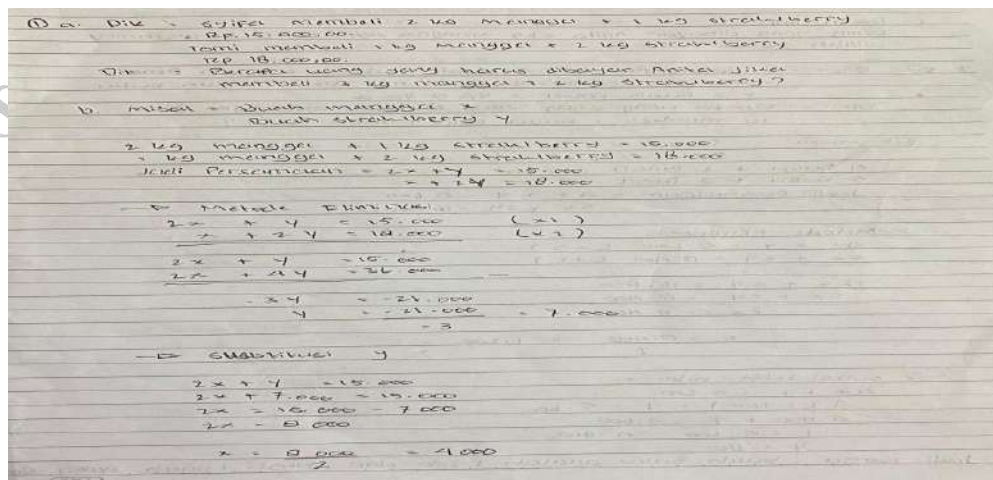 ① a. Dik = Syifa Membeli 2 kg mangga + 1 kg strawberry
Rp. 15.000,00.
Tomi membeli 1 kg mangga + 2 kg strawberry
Rp 18.000,00.
Dit = Berapa uang yang harus dibayar Anita jika
membeli 3 kg mangga + 2 kg strawberry?
b. misal = Buah mangga x
Buah strawberry y
2 kg mangga + 1 kg strawberry = 15.000
1 kg mangga + 2 kg strawberry = 18.000
Jadi Persamaan = 2x + y = 15.000
x + 2y = 18.000
→ Metode Eliminasi
2x + y = 15.000 (x1)
x + 2y = 18.000 (x2)
2x + y = 15.000
2x + 4y = 36.000 —
-3y = -21.000
y = -21.000 = 7.000
-3
→ Substitusi y
2x + y = 15.000
2x + 7.000 = 15.000
2x = 15.000 - 7000
2x = 8 000
x = 8 000 = 4000
2